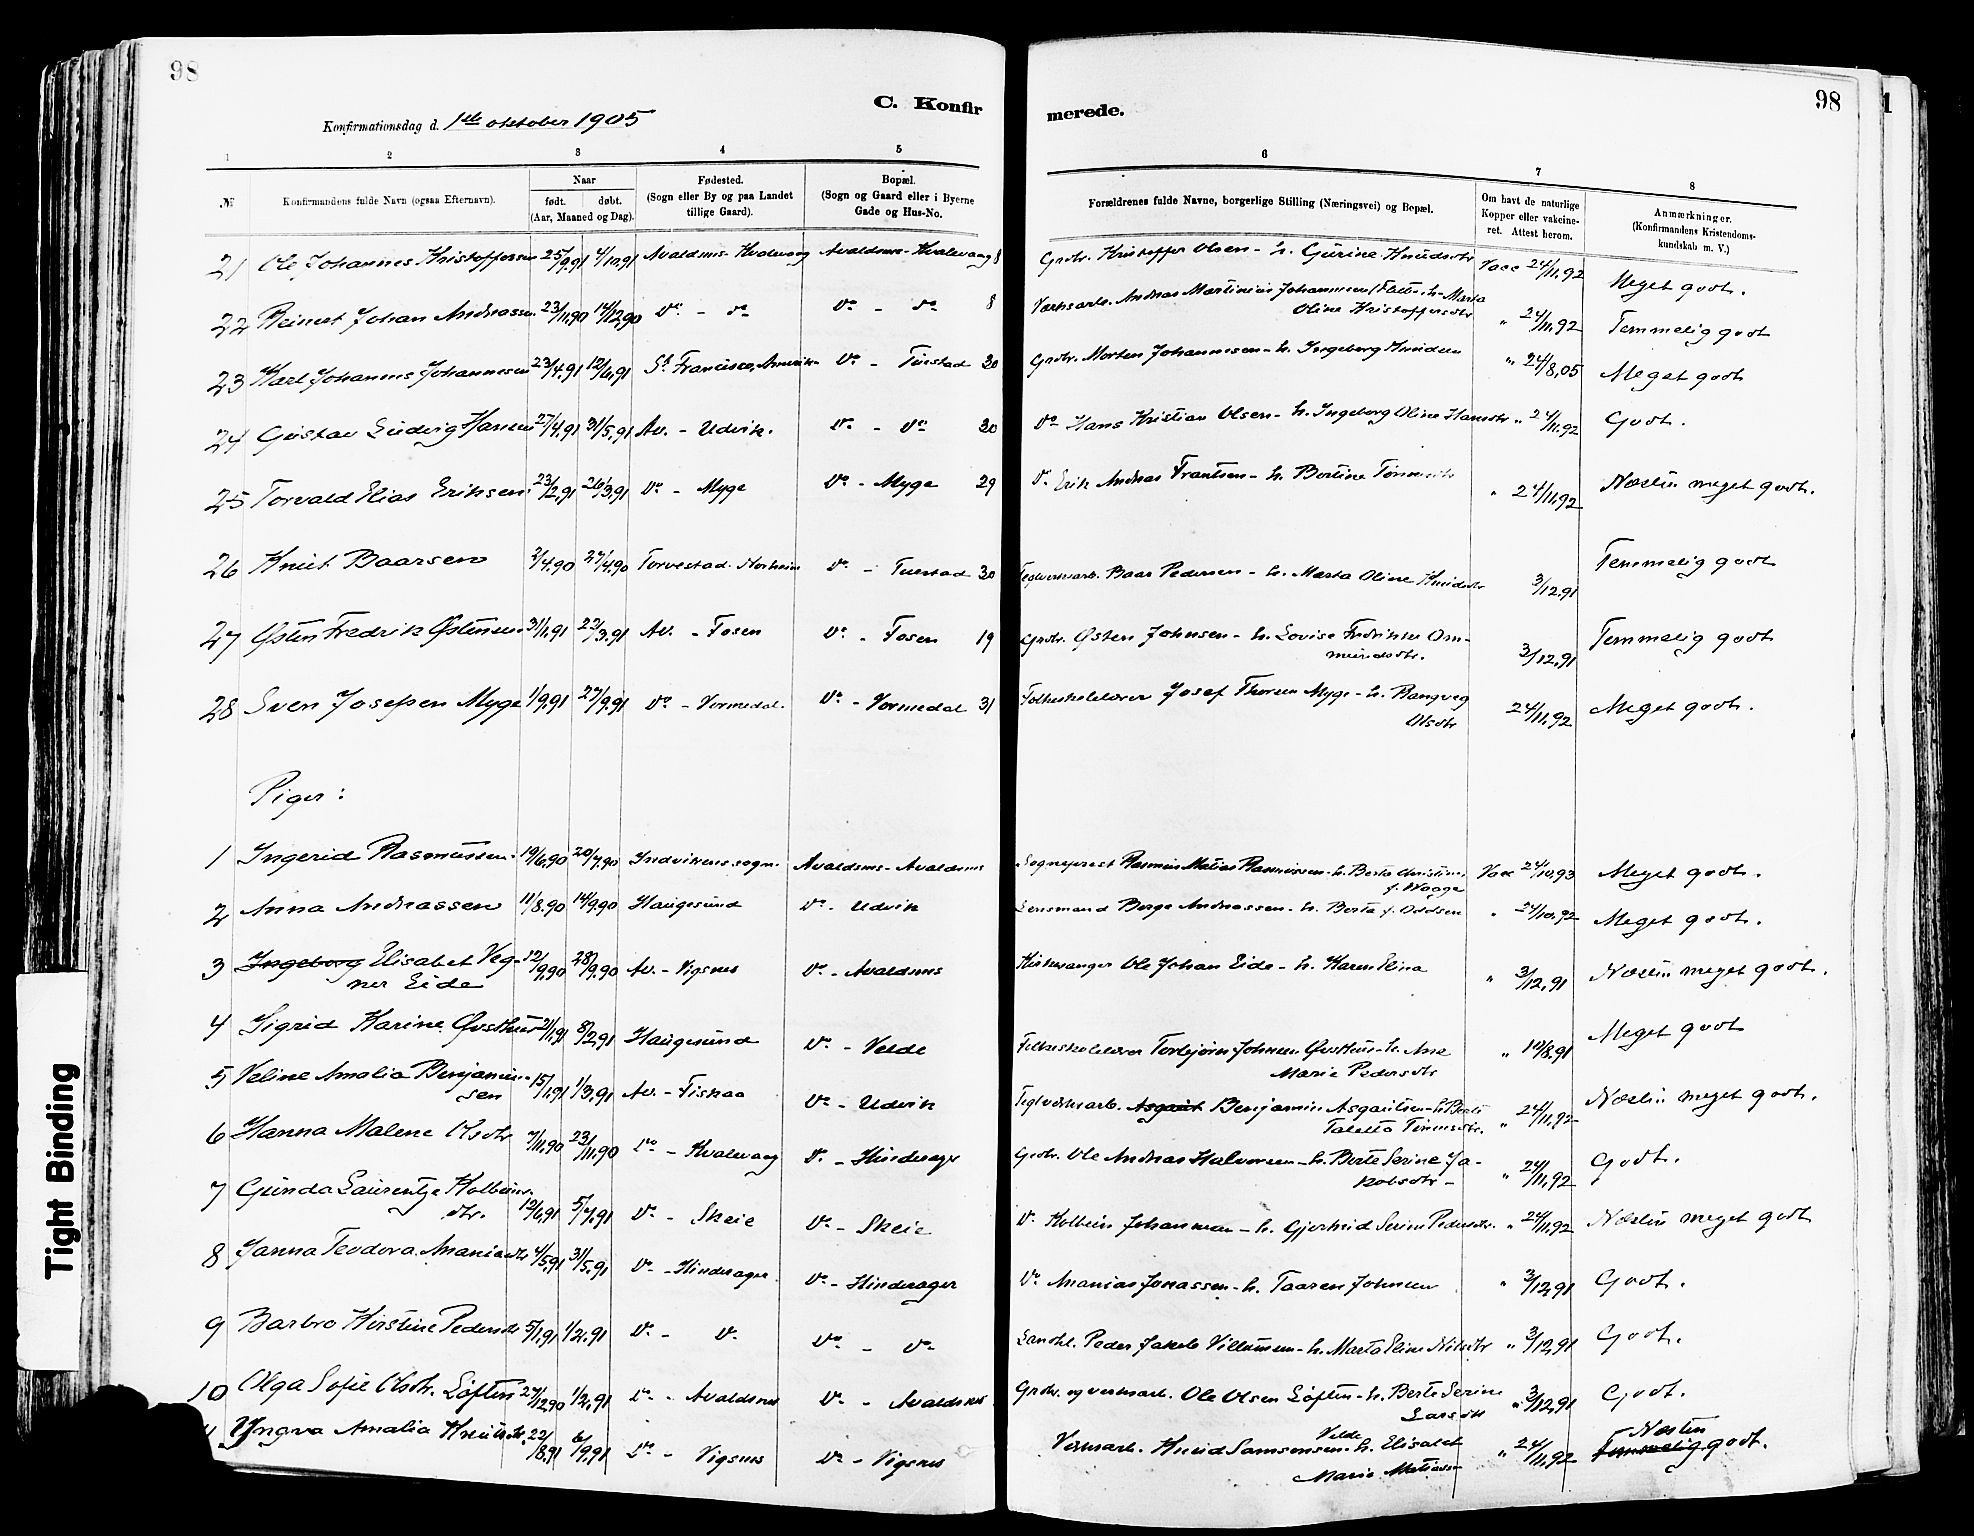 98
C. Konfir
merede.
98
1
Konfirmationsdag d. 1ste oktober 1905
1 2 3 4 5 6 7 8
№ Konfirmandens fulde Navn (ogsaa Efternavn). Naar født. døbt. (Aar, Maaned og Dag). Fødested. (Sogn eller By og paa Landet tillige Gaard). Bopæl. (Sogn og Gaard eller i Byerne Gade og Hus-No. Forældrenes fulde Navne, borgerlige Stilling (Næringsvei) og Bopæl. Om havt de naturlige Kopper eller vakcineret. Attest herom. Anmærkninger. (Konfirmandens Kristendomskundskab m. V.)
21 Ole Johannes Kristoffersen 25/9.91 4/10.91 Avaldsnes - Kvalevaag Avaldsnes - Kvalevaag 8 Grdbr. Kristoffer Olsen - h. Gurine Knudsdtr Vacc 24/11.92 Meget godt.
22 Reinert Johan Andreassen 23/11.90 14/12.90 Do - do Do - do 8 Værksarb. Andreas Martinius Johannesen h. Marta
Oline Kristoffersdtr " 24/11.92 Temmelig godt
23 Karl Johannes Johannesen 23/4.91 12/6.91 St Francisco, Amerika Do - Tuestad 30 Grdbr. Morten Johannesen - h. Ingeborg Knudsen " 24/8.05 Meget godt
24 Gustav Ludvig Hansen 27/4.91 31/5.91 Av. - Udvik. Do - Do 30 Do Hans Kristian Olsen - h. Ingeborg Oline Hansdtr " 24/11.92 Godt.
25 Torvald Elias Eriksen 23/2.91 26/3.91 Do - Myge Do - Myge 29 Do Erik Andreas Frantsen - h. Bertine " 24/11.92 Næsten meget godt.
26 Knut Baarsen 2/4.90 27/4.90 Torvestad - Do - Tuestad 30 Teglverksarb. Baar Pedersen - h. Marta Oline Knudsdtr 3/12.91 Temmelig godt
27 Østen Fredrik Østensen 31/1.91 22/3.91 Av. - Fosen Do - Fosen 19 Grdbr. Østen Johnsen - h. Lovise Fredrikke Om-
mundsdtr. 3/12.91 Temmelig godt
28 Sven Josefsen Myge 1/9.91 27/9.91 Do - Vormedal. Do - Vormedal 31 Folkeskolelærer Josef Thorsen Myge - h. Rangveg
Olsdtr 24/11.92 Meget godt.
Piger:
1 Ingerid Rasmussen 19/6.90 20/7.90 Indvikens sogn. Avaldsnes - Avaldsnes Sogneprest Rasmus Matias Rasmussen - h. Berta Christine
f. Waage Vacc 24/10.93 Meget godt.
2 Anna Andreassen 11/8.90 14/9.90 Haugesund Do - Udvik Lensmand Børge Andreassen - h. Berta f. Oddsen " 24/10.92 Meget godt.
3 Ingeborg Elisabet Veg-
ner Eide 12/9.90 28/9.90 Av. - Vigsnes Do - Avaldsnes Kirkesanger Ole Johan Eide - h. Karen Elina " 3/12.91 Næsten meget godt.
4 Sigrid Karine Østhus 2/1.91 8/2.91 Haugesund Do - Velde Folkeskolelærer Torbjørn Johnsen Østhus - h. Ane
Marie Pedersdtr " 19/8.91 Meget godt
5 Veline Amalia Benjamin-
sen 15/1.91 1/3.91 Av. - Fiskaa Do - Udvik Teglverksarb. Asgaut Benjamin Asgautsen - h. Berte
Taletta " 24/11.92 Næsten meget godt.
6 Hanna Malene Olsdtr 7/11.90 23/11.90 Do - Kvalevaag Do - Hinderager Grdbr. Ole Andreas Halvorsen - h. Berte Serine Ja-
kobsdtr - " 24/11.92 Godt.
7 Gunda Laurentze Kolbeins-
dtr. 12/6.91 5/7.91 Do - Skeie Do - Skeie Do Kolbein Johannesen - h. Gjertrud Serine Pedersdtr. " 24/11.92 Næsten meget godt
8 Janna Teodora Ananiasdtr 4/5.91 31/5.91 Do - Hinderager Do - Hinderager Do Ananias Jonassen - h. Taaren Johnsen " 3/12.91 Godt.
9 Barbro Kirstine Pedersdtr 5/1.91 1/2.91 Do - Do Do - Do Landhl. Peder Jakob Villumsen - h. Marta Eline Nilsdtr " 3/12.91 Godt.
10 Olga Sofie Olsdtr. Løften 27/12.90 1/2.91 Do - Avaldsnes Do - Avaldsnes Grdbr. og verksarb. Ole Olsen Løften - h. Berte Serine
Larsdtr " 3/12.91 Godt.
Yngva Amalia Knutsdtr. 22/8.91 6/9.91 Do - Vigsnes Do - Vigsnes Verksarb. Knud Samsonsen Velde - h. Elisabet
Marie " 24/11.92 Næsten Temmelig godt.
Tight Binding